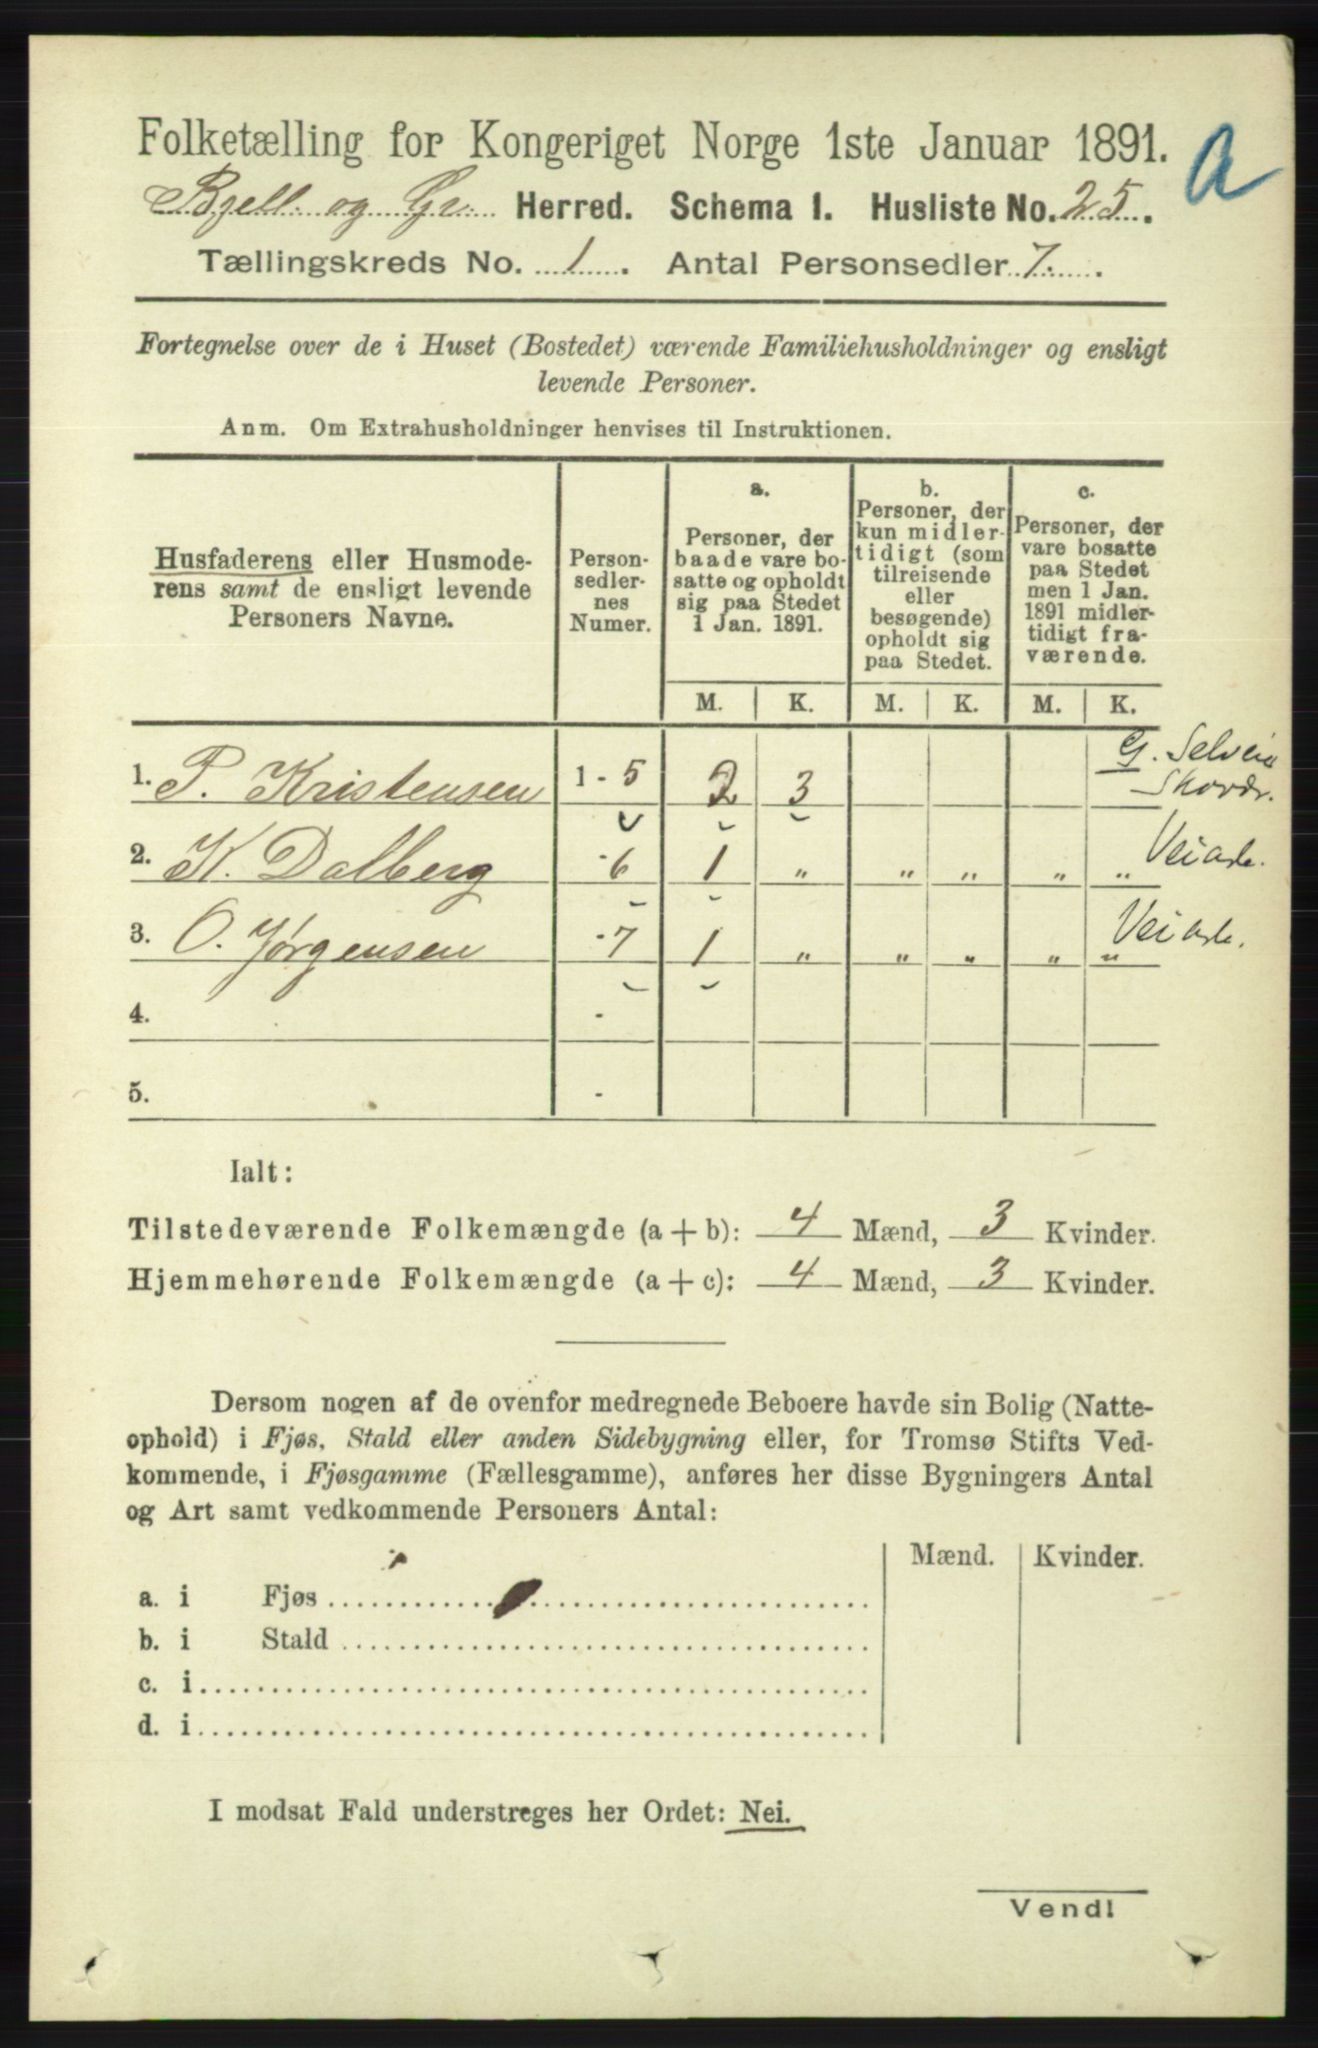 Folketælling for Kongeriget Norge 1ste Januar 1891.
a
Bjell. og Gr. Herred. Schema 1. Husliste No. 25.
Tællingskreds No. 1. Antal Personsedler 7.
Fortegnelse over de i Huset (Bostedet) værende Familiehusholdninger og ensligt
levende Personer.
Anm. Om Extrahusholdninger henvises til Instruktionen.
Husfaderens eller Husmode-
rens samt de ensligt levende
Personers Navne.
Person-
sedler-
nes
Numer.
a.
Personer, der
baade vare bo-
satte og opholdt
sig paa Stedet
1 Jan. 1891.
b.
Personer, der
kun midler-
tidigt (som
tilreisende
eller
besøgende)
opholdt sig
paa Stedet.
c.
Personer, der
vare bosatte
paa Stedet
men 1 Jan.
1891 midler-
tidigt fra-
værende.
M. K. M. K. M. K.
G. Selveier
1. P. Kristensen 1 - 5 2 3
2. K. Dalberg - 6 1 „ „ „ „ „ Veiarb.
3. O. Jørgensen - 7 1 „ „ „ „ „ Veiarb.
4. -
5. -
Ialt:
Tilstedeværende Folkemængde (a + b): 4 Mænd, 3 Kvinder.
Hjemmehørende Folkemængde (a + c): 4 Mænd, 3 Kvinder.
Dersom nogen af de ovenfor medregnede Beboere havde sin Bolig (Natte-
ophold) i Fjøs, Stald eller anden Sidebygning eller, for Tromsø Stifts Ved-
kommende, i Fjøsgamme (Fællesgamme), anføres her disse Bygningers Antal
og Art samt vedkommende Personers Antal:
Mænd. Kvinder.
a. i Fjøs
b. i Stald
c. i
d. i
I modsat Fald understreges her Ordet: Nei.
Vend!